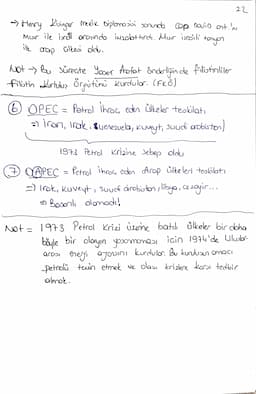 22
→ Henry Kissinger mekik diplomasisi sonunda
Mısır ile İsrail arasında imzalatılırdı. Mısır İsraili tanıyan
ilk arap ülkesi oldu.
Not → Bu süreçte Yaser Arafat önderliğinde filistinliler
filistin kurtuluş Örgütünü kurdular. (FKÖ)
⑥ OPEC = Petrol ihraç eden ülkeler teşkilatı
⇒ İran, Irak, Venezuela, kuveyt, suudi arabistan)
1973 Petrol Krizine sebep oldu
⑦ OAPEC = Petrol ihraç eden Arap ülkeleri teşkilatı
⇒ Irak, kuveyt, suudi arabistan, libya, cezayir...
⇒ Başarılı olamadı!
Not = 1973 Petrol Krizi üzerine batılı ülkeler bir daha
böyle bir olayın yaşanmaması için 1974'de Ulular-
arası enerji ajansını kurdular. Bu kuruluşun amacı
petrolü temin etmek ve olası krizlere karşı tedbir
almak.